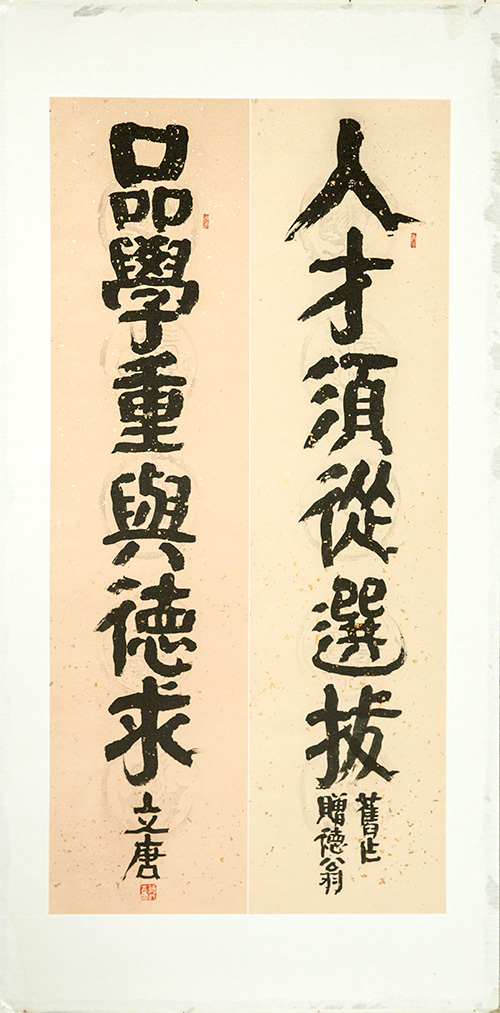 人才須從選拔
舊作
贈德翁
品學重與德求
文唐